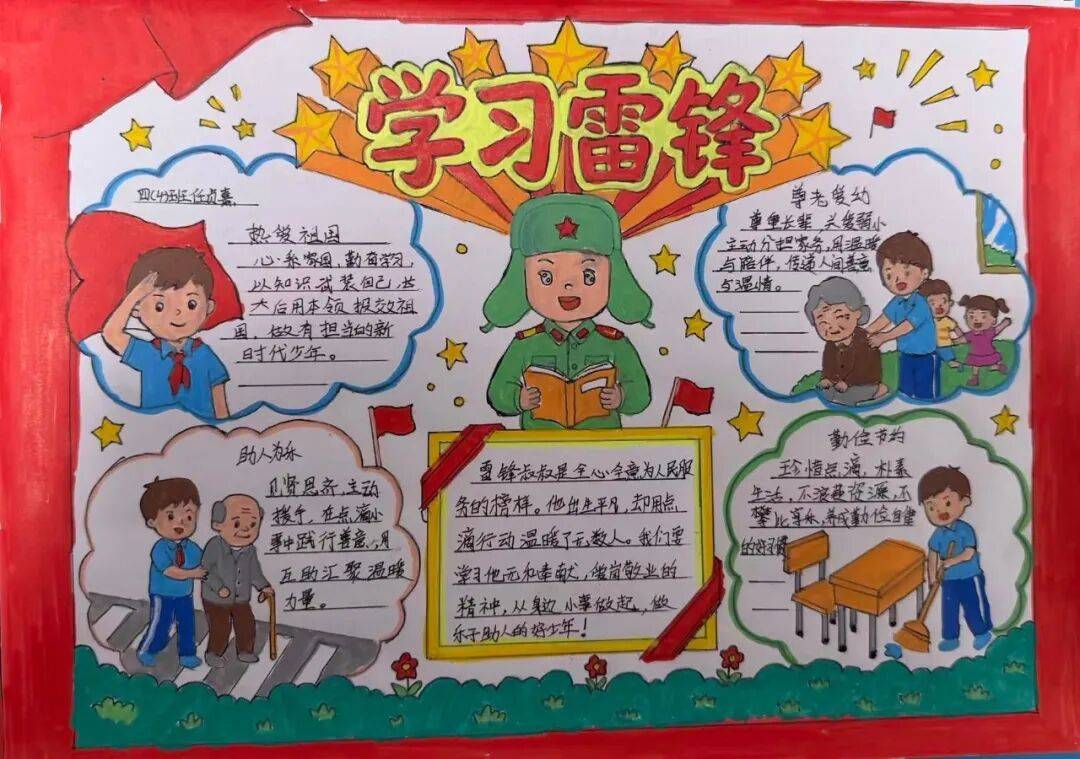 学习雷锋
四(4)班 任贞熹
热爱祖国
心系家国，勤奋学习，
以知识武装自己，长
大后用本领报效祖
国，做有担当的新
时代少年。
尊老爱幼
尊重长辈，关爱弱小
主动分担家务，用温暖
与陪伴，传递人间善意
与温情。
助人为乐
见贤思齐，主动
援手，在点滴小
事中践行善意，用
互助汇聚温暖
力量。
雷锋叔叔是全心全意为人民服
务的榜样。他出生平凡，却用点
滴行动温暖了无数人。我们要
学习他无私奉献，爱岗敬业的
精神，从身边小事做起，做
乐于助人的好少年！
勤俭节约
珍惜点滴，朴素
生活，不浪费资源，不
攀比享乐，养成勤俭自律
的好习惯